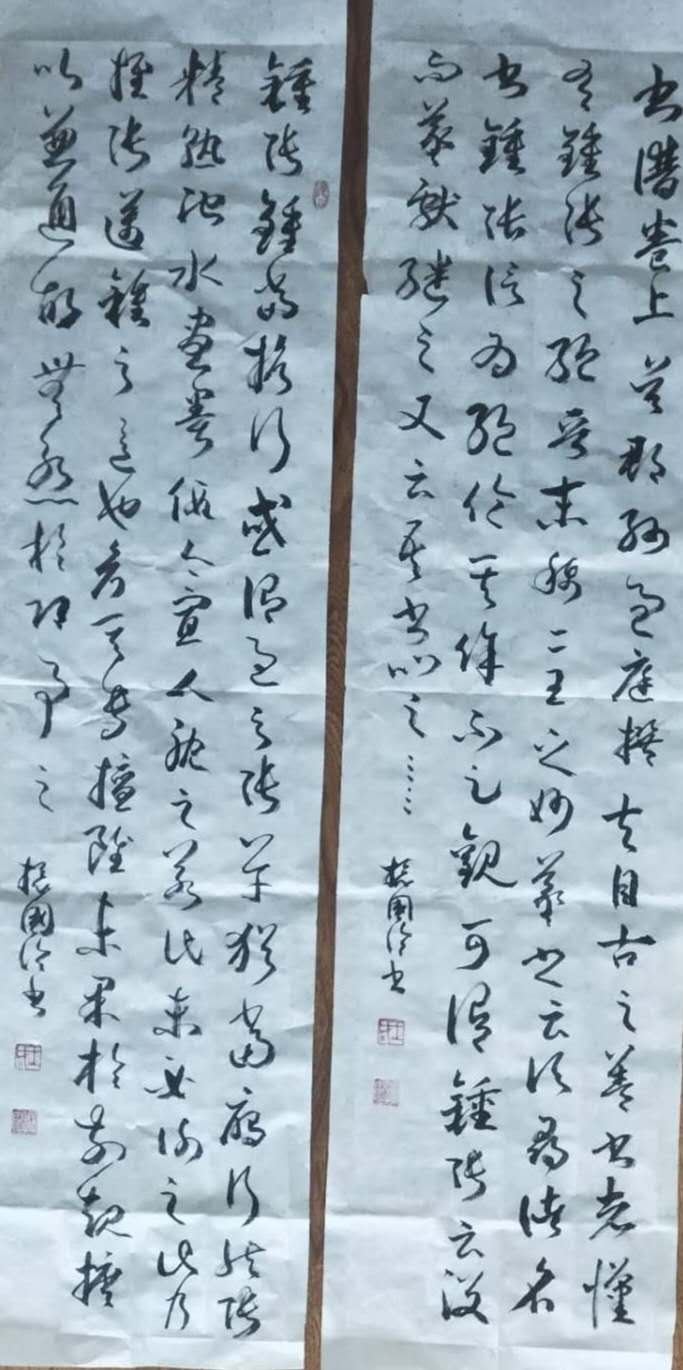 書譜卷上吳郡孫過庭撰夫自古之善書者漢
有鍾張之絕晉末稱二王之妙羲之云頃尋諸名
書鍾張信為絕倫其餘不足觀可謂鍾張云沒
而羲獻繼之又云吾書比之……
國書
鍾張鍾當抗行或謂過之張草猶當雁行然張
精熟池水盡墨假令寡人耽之若此未必謝之此乃
推張邁鍾之意也考其專擅雖未果於前規摭
以兼通故無慚於即事之
國書